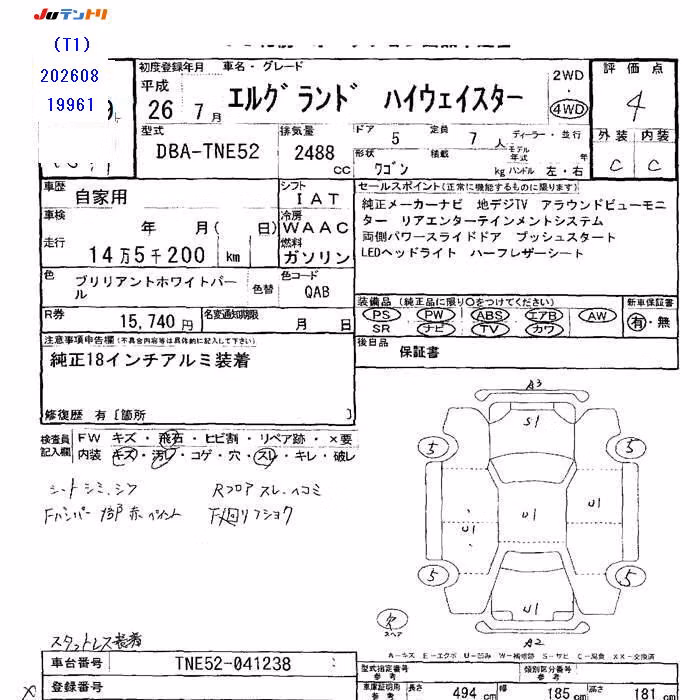 JUテントリ
(T1)
202608
19961
初度登録年月 車名・グレード
平成 26年 7月
エルグランド ハイウェイスター
2WD
・
4WD
評価点
4
外装 内装
C C
型式
DBA-TNE52
排気量
2488
CC
ドア 5
定員 7人
ディーラー・並行
形状 ワゴン
積載 kg
モデル年式 年
ハンドル 左・右
車歴 自家用
シフト IAT
車検 年 月( 日)
冷房 WAAC
走行 14万5千200 km
燃料 ガソリン
色 ブリリアントホワイトパール
色替
色コード QAB
R券 15,740円
名変通知期限 月 日
セールスポイント(正常に機能するものに限ります)
純正メーカーナビ 地デジTV アラウンドビューモニ
ター リアエンターテインメントシステム
両側パワースライドドア プッシュスタート
LEDヘッドライト ハーフレザーシート
装備品(純正品に限り○をつけてください)
PS PW ABS エアB AW
SR ナビ TV カワ
新車保証書
有・無
後日品 保証書
注意事項申告欄(不具合内容等は具体的に記入して下さい)
純正18インチアルミ装着
修復歴 有〔箇所 〕
検査員記入欄
FW キズ・飛石・ヒビ割・リペア跡・×要
内装 キズ・汚レ・コゲ・穴・スレ・キレ・破レ
シートシミ、シワ Rフロアスレ、ヘコミ
Fバンパー 1部赤ペイント
A3
S1
5 5
U1 U1 U1
5 5
U1
A2
スペア
スタットレス装着
A-キズ E-エクボ U-凹み W-補修跡 S-サビ C-腐食 XX-交換済
車台番号 TNE52-041238
登録番号
型式指定番号 類別区分番号
車庫証明用参考 長さ 494cm 幅 185cm 高さ 181cm